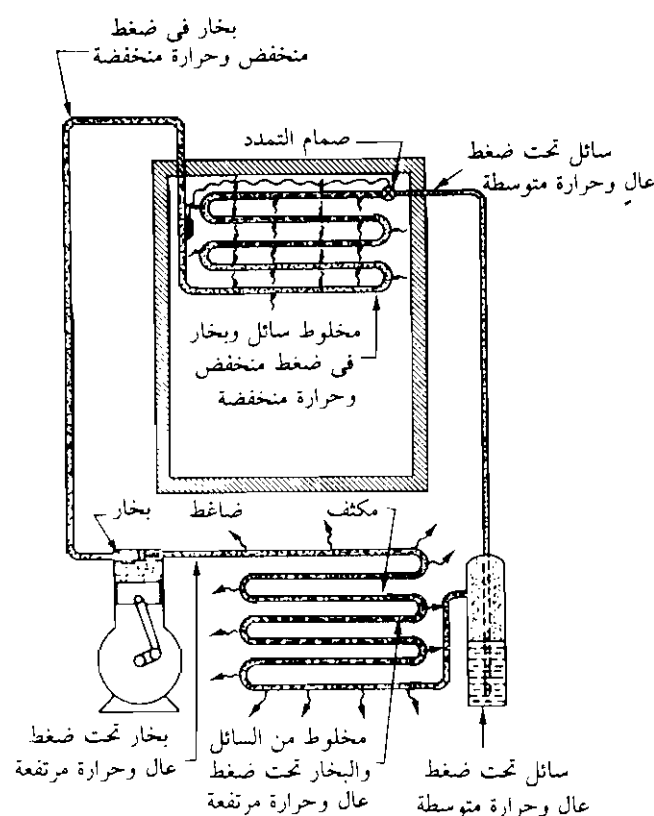 بخار فى ضغط
منخفض وحرارة منخفضة
صمام التمدد
سائل تحت ضغط
عالٍ وحرارة متوسطة
مخلوط سائل وبخار
فى ضغط منخفض
وحرارة منخفضة
مكثف
ضاغط
بخار
بخار تحت ضغط
عال وحرارة مرتفعة
مخلوط من السائل
والبخار تحت ضغط
عال وحرارة مرتفعة
سائل تحت ضغط
عال وحرارة متوسطة